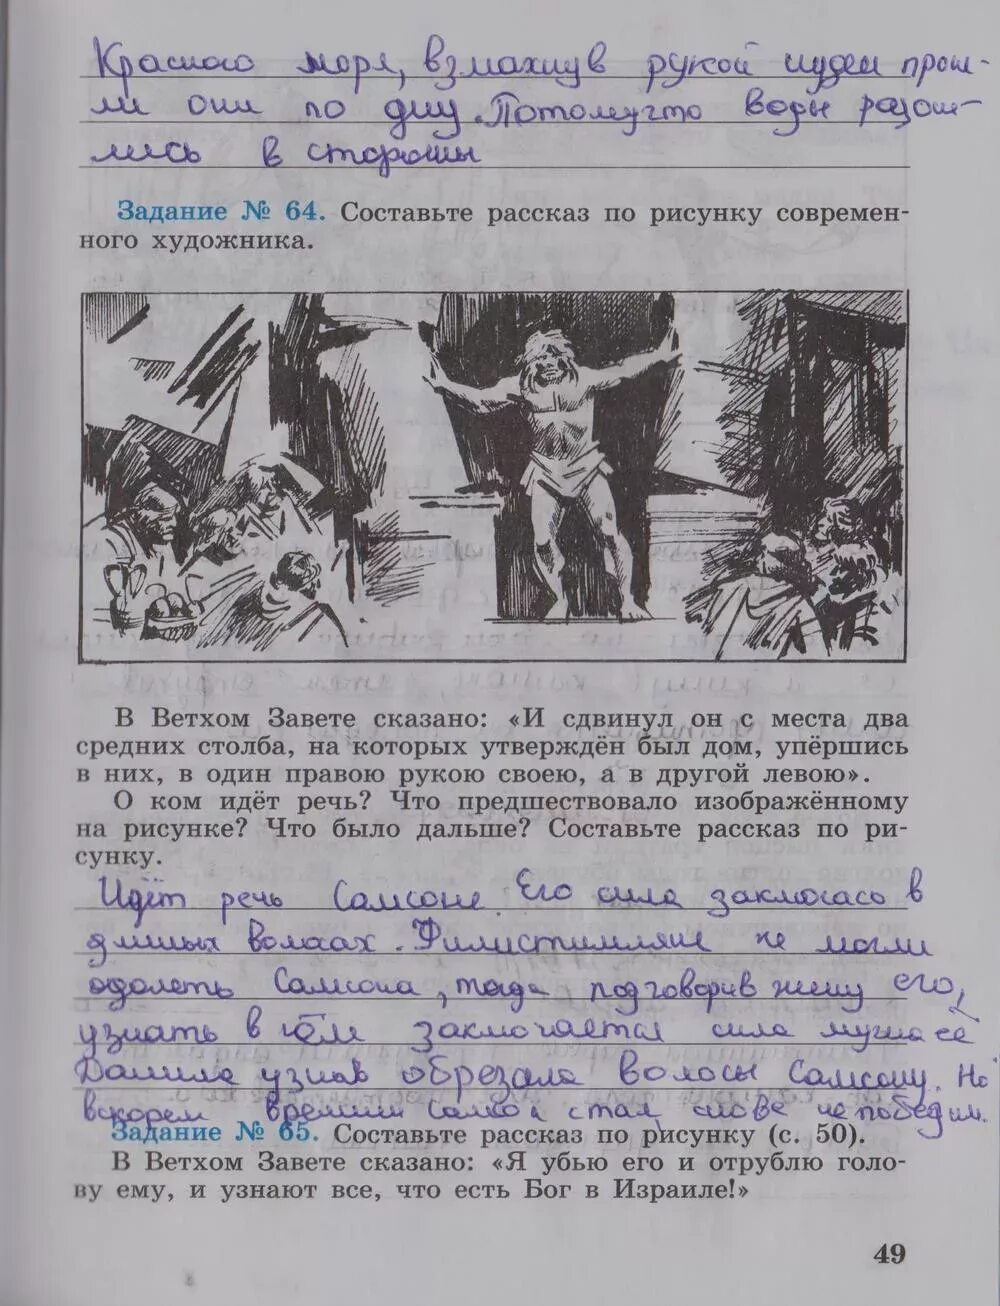 Красного моря, взмахнув рукой иудеи прош-
ли они по дну. Потомучто воды разош-
лись в стороны
Задание № 64. Составьте рассказ по рисунку современ-
ного художника.
В Ветхом Завете сказано: «И сдвинул он с места два
средних столба, на которых утверждён был дом, упёршись
в них, в один правою рукою своею, а в другой левою».
О ком идёт речь? Что предшествовало изображённому
на рисунке? Что было дальше? Составьте рассказ по ри-
сунку.
Идёт речь Самсоне. Его сила заключась в
длиных волаах. Филистимляне не могли
одолеть Самсона, тогда подговорив жену его,
узнать в чём заключается сила мужа её
Далила узнав обрезала волосы Самсону. Но
вскорем времини Самсон стал снове непобедим.
Задание № 65. Составьте рассказ по рисунку (с. 50).
В Ветхом Завете сказано: «Я убью его и отрублю голо-
ву ему, и узнают все, что есть Бог в Израиле!»
49